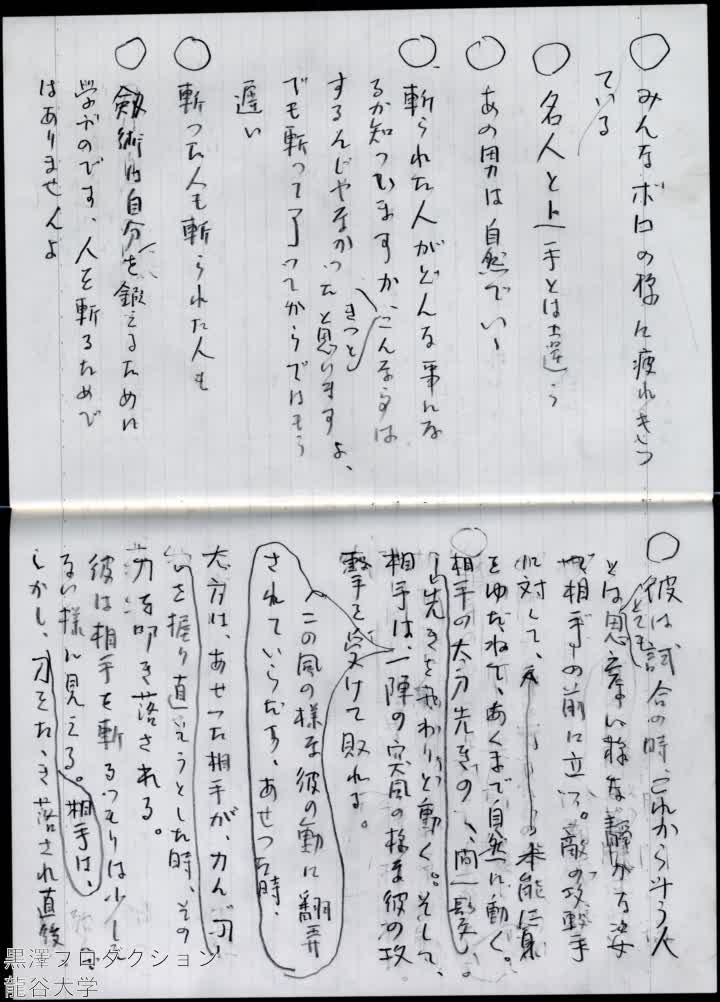 ○ みんなボロの様に疲れきつ
ている
○ 名人と上手とは違う
○ あの男は自然でいゝ
○ 斬られた人がどんな事にな
るか知つてますか、こんな事は
するんじやなかつたときつと思いますよ、
でも斬つて了つてからではもう
遅い
○ 斬つた人も斬られた人も
○ 剣術は自分を鍛えるために
学ぶのです、人を斬るためで
はありませんよ
○ 彼は試合の時、これから斗う人
とはとても思えない様な静かな姿
で相手の前に立つ。敵の攻撃
に対して、の本能に身
をゆだねて、あくまで自然に動く。
相手の太刀先きの、間一髪
先きをふわりと動く。そして、
相手は、一陣の突風の様な彼の攻
撃を受けて敗れる。
この風の様な彼の動に翻弄
されていらだち、あせつた時、
大方は、あせつた相手が、刀
を握り直そうとした時、その
刀を叩き落される。
彼は相手を斬るつもりは少しも
ない様に見える。相手は、
しかし、刀をたゝき落され直後
黒澤プロダクション
龍谷大学